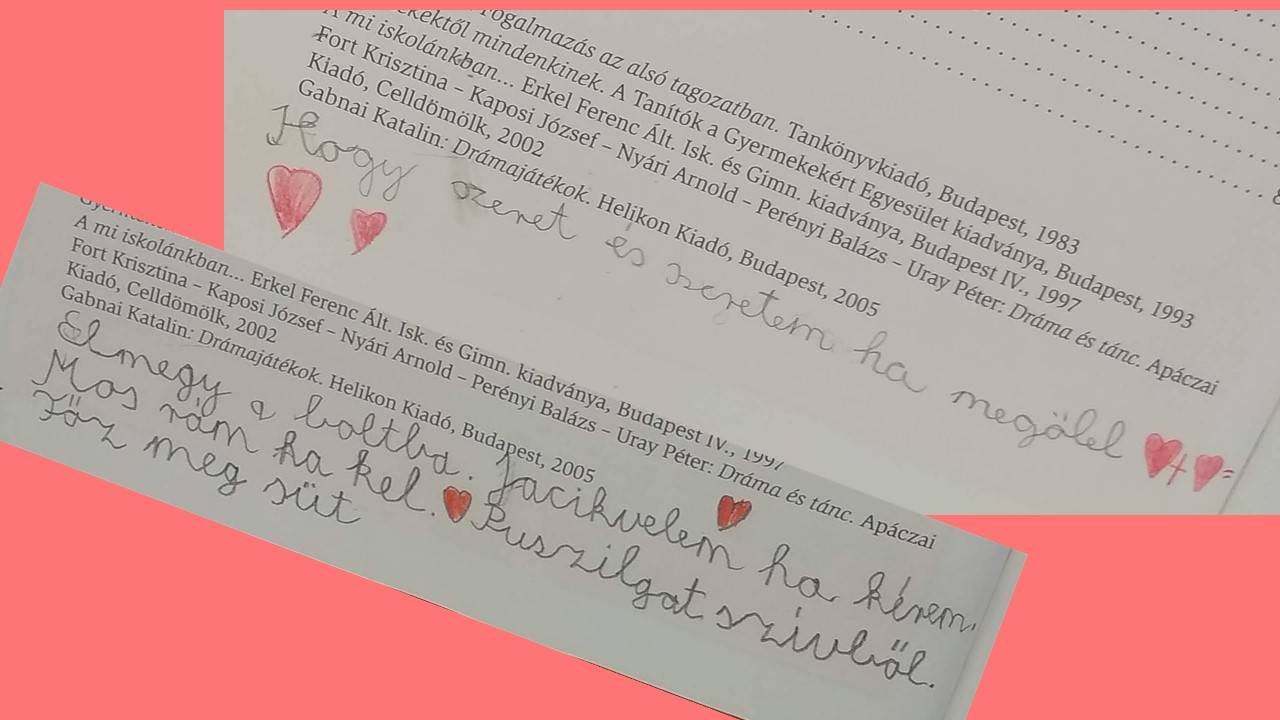 Fogalmazás az alsó tagozatban. Tankönyvkiadó, Budapest, 1983
mindenkinek. A Tanítók a Gyermekekért Egyesület kiadványa, Budapest, 1993
A mi iskolánkban... Erkel Ferenc Ált. Isk. és Gimn. kiadványa, Budapest IV., 1997
Fort Krisztina – Kaposi József – Nyári Arnold – Perényi Balázs – Uray Péter: Dráma és tánc. Apáczai
Kiadó, Celldömölk, 2002
Gabnai Katalin: Drámajátékok. Helikon Kiadó, Budapest, 2005
Hogy szeret es szeretem ha megölel
A mi iskolánkban... Erkel Ferenc Ált. Isk. és Gimn. kiadványa, Budapest IV., 1997
Fort Krisztina – Kaposi József – Nyári Arnold – Perényi Balázs – Uray Péter: Dráma és tánc. Apáczai
Kiadó, Celldömölk, 2002
Gabnai Katalin: Drámajátékok. Helikon Kiadó, Budapest, 2005
Elmegy a boltba. Jacikvelem ha kérem.
Mos rám ha kel. Puszilgat szívből.
Főz meg süt